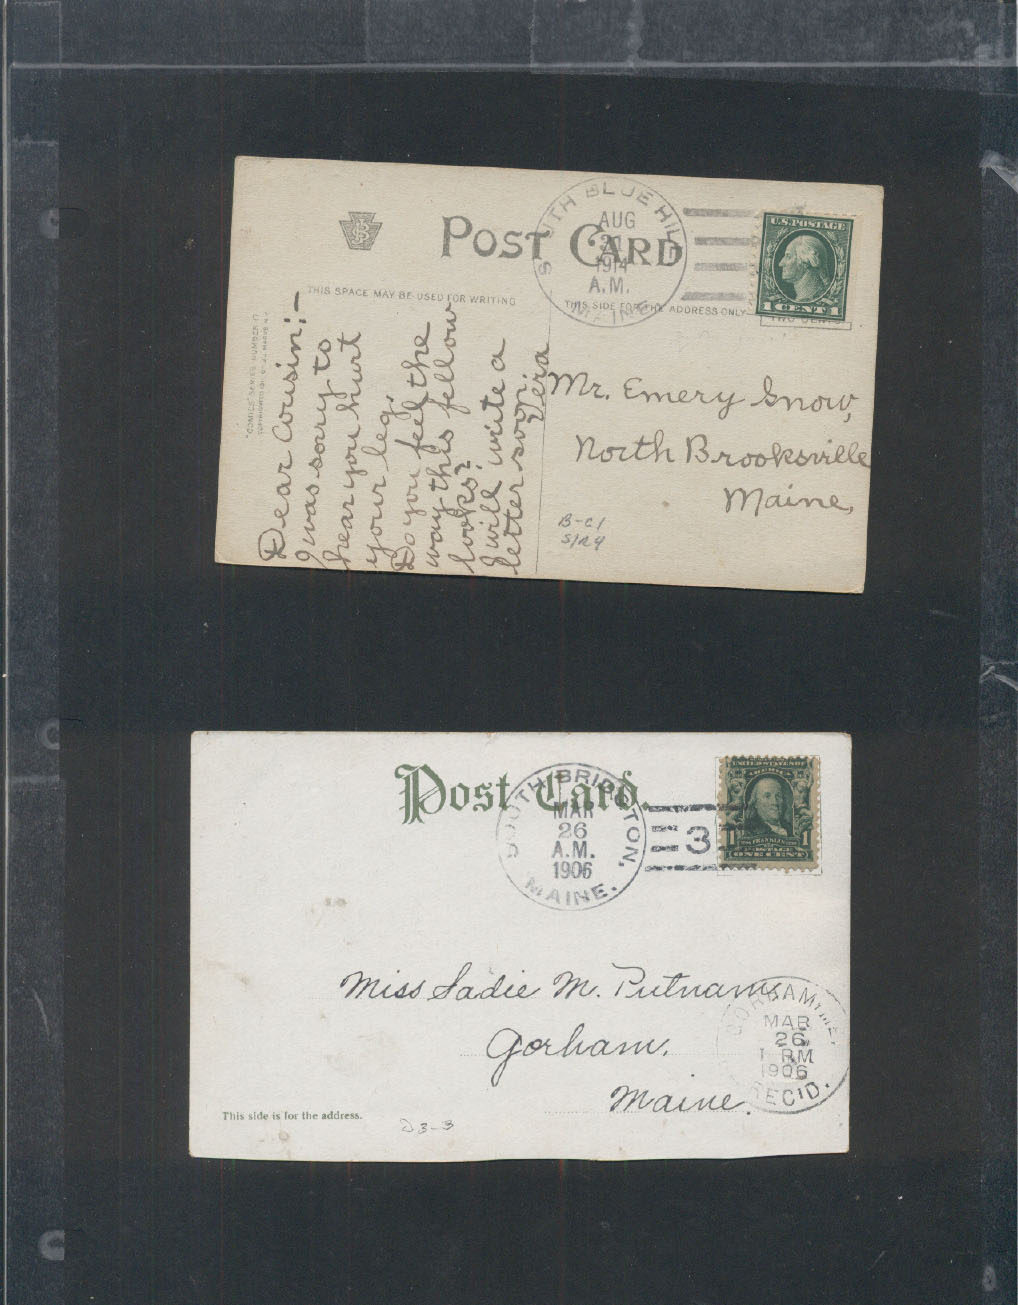 POST CARD
THIS SPACE MAY BE USED FOR WRITING
THIS SIDE FOR THE ADDRESS ONLY
SOUTH BLUE HILL
AUG
1914
A.M.
MAINE
U.S. POSTAGE
1 CENT 1
TWO CENTS
"COMICS" SERIES NUMBER 17
Dear Cousin:-
I was sorry to
hear you hurt
your leg.
Do you feel the
way this fellow
looks?
I will write a
letter soon.
Vera
Mr. Emery Snow,
North Brooksville
Maine,
B-C1
S/R4
Post Card.
SOUTH BRIDGTON,
MAR
26
A.M.
1906
MAINE.
3
UNITED STATES OF
AMERICA
1 1
POSTAGE
ONE CENT
Miss Sadie M. Putnam,
Gorham,
Maine.
GORHAM, ME.
MAR
26
1 PM
1906
REC'D.
This side is for the address.
D3-3